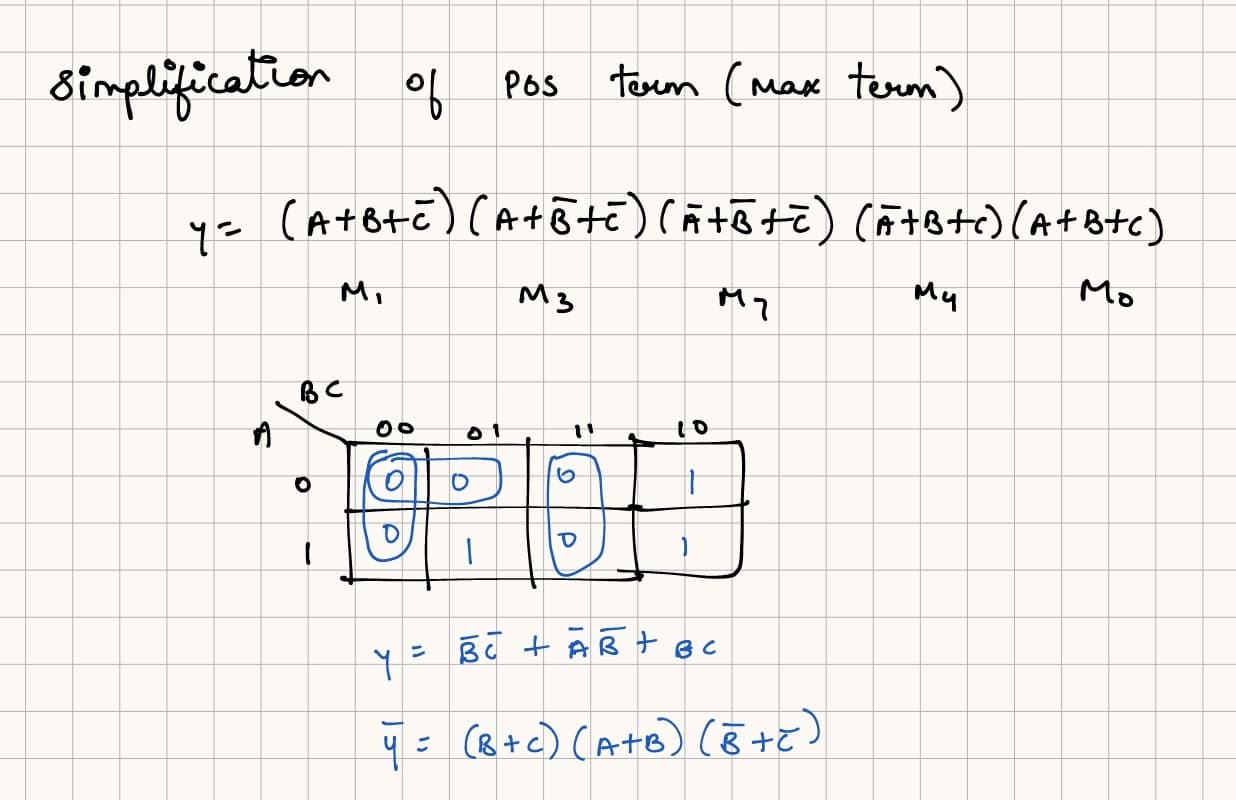 Simplification of POS term (Max term)
Y = (A+B+C̅)(A+B̅+C̅)(A̅+B̅+C̅)(A̅+B+C)(A+B+C)
M₁ M₃ M₇ M₄ M₀
BC
A 00 01 11 10
0 0 0 0 1
1 0 1 0 1
Y = B̅C̅ + A̅B̅ + BC
Y̅ = (B+C)(A+B)(B̅+C̅)